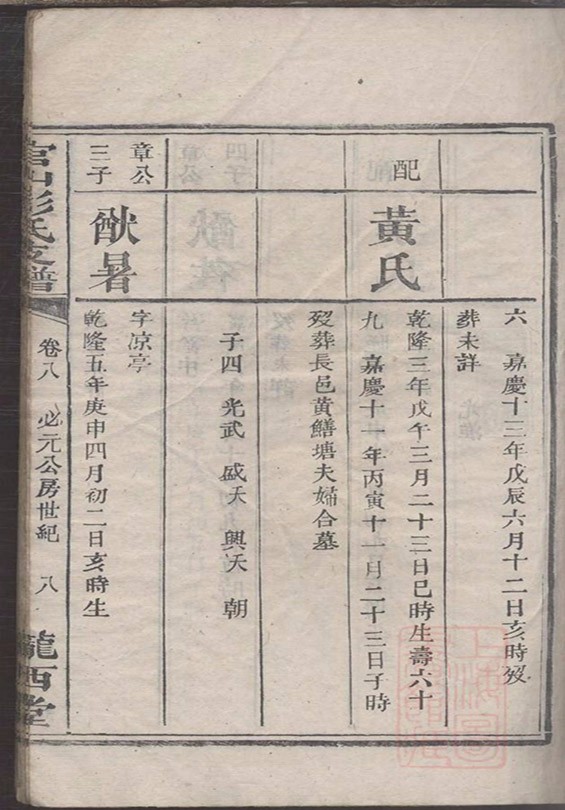 六 嘉慶十三年戊辰六月十二日亥時歿
葬未詳
配
黃氏
乾隆三年戊午三月二十三日巳時生壽六十
九 嘉慶十一年丙寅十一月二十三日子時
歿葬長邑黃鱔塘夫婦合墓
子四 光武 盛天 興天 朝
章公
三子
猷暑
字凉亭
乾隆五年庚申四月初二日亥時生
官山彭氏支譜
卷八 必元公房世紀 八
隴西堂